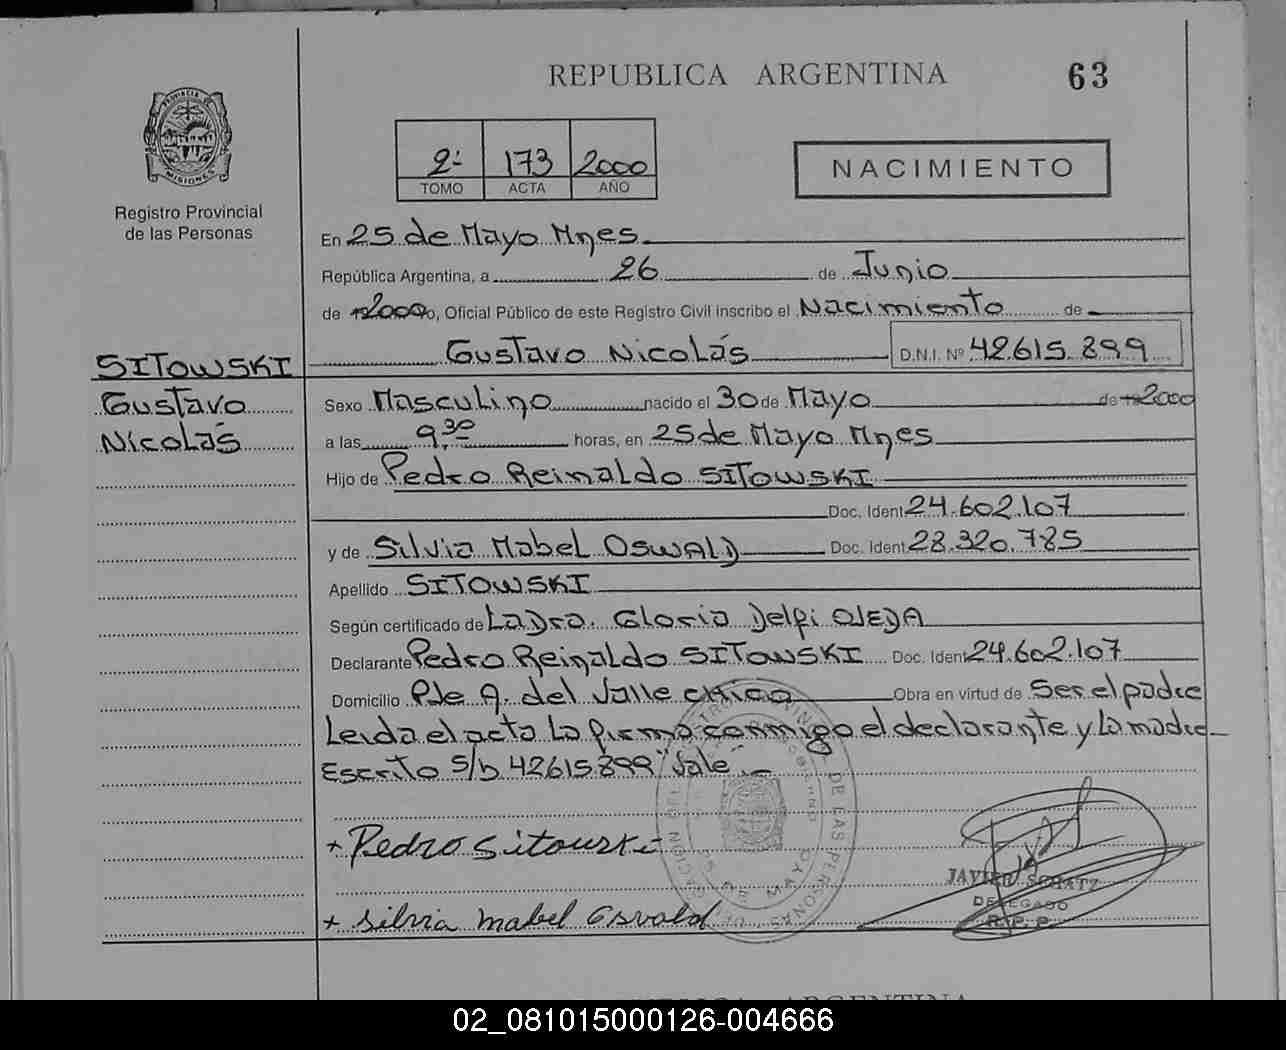 REPUBLICA ARGENTINA
63
PROVINCIA DE MISIONES
Registro Provincial
de las Personas
2º 173 2000
TOMO ACTA AÑO
NACIMIENTO
En 25 de Mayo Mnes.
República Argentina, a 26 de Junio
de 2000, Oficial Público de este Registro Civil inscribo el Nacimiento de
Gustavo Nicolás D.N.I. Nº 42.615.899
SITOWSKI
Gustavo
Nicolás
Sexo Masculino nacido el 30 de Mayo de 2000
a las 9,30 horas, en 25 de Mayo Mnes
Hijo de Pedro Reinaldo SITOWSKI
Doc. Ident 24.602.107
y de Silvia Mabel OSWALD Doc. Ident 28.320.785
Apellido SITOWSKI
Según certificado de La Dra. Gloria Delfi OJEDA
Declarante Pedro Reinaldo SITOWSKI Doc. Ident 24.602.107
Domicilio Pje A. del Valle chico Obra en virtud de Ser el padre
Leida el acta La firma conmigo el declarante y La madre
Escrito s/b 42615899 "Vale"
+ Pedro Sitouski
+ silvia mabel Osvald
DE LAS PERSONAS
25 DE MAYO
JAVIER SCHATZ
DELEGADO
R. P. P.
REPUBLICA ARGENTINA
02_081015000126-004666